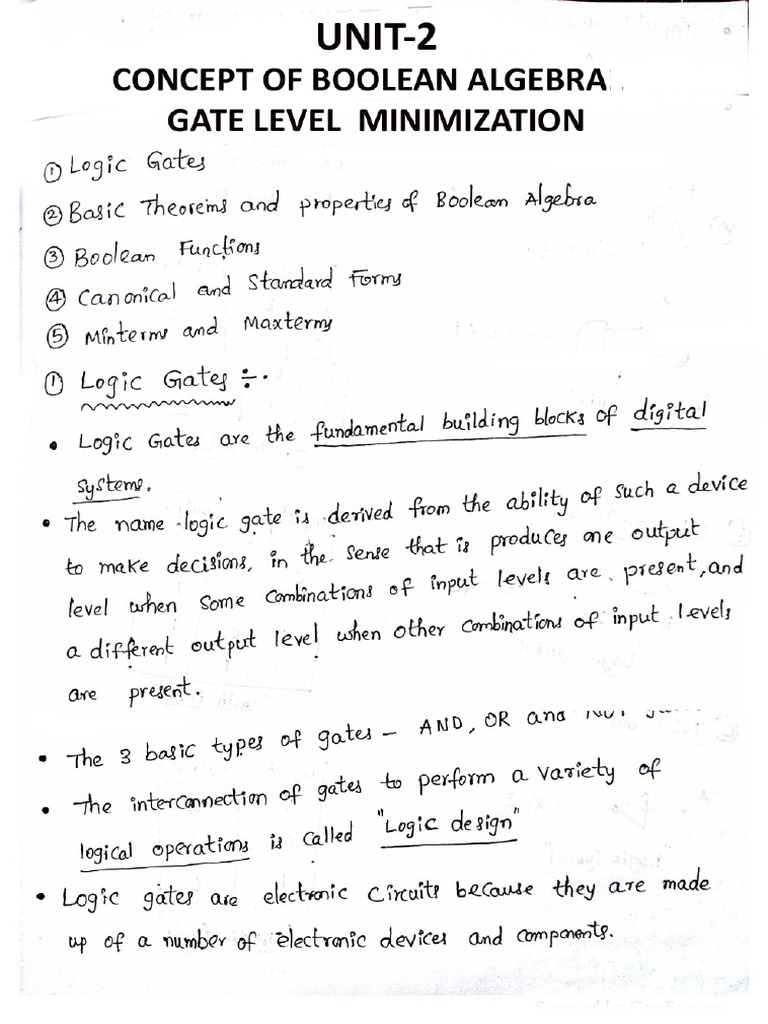 UNIT-2
CONCEPT OF BOOLEAN ALGEBRA
GATE LEVEL MINIMIZATION
① Logic Gates
② Basic Theorems and properties of Boolean Algebra
③ Boolean Functions
④ Canonical and Standard Forms
⑤ Minterms and Maxterms
① Logic Gates ÷.
• Logic Gates are the fundamental building blocks of digital
systems.
• The name logic gate is derived from the ability of such a device
to make decisions, in the sense that is produces one output
level when some combinations of input levels are present, and
a different output level when other combinations of input levels
are present.
• The 3 basic types of gates - AND, OR and
• The interconnection of gates to perform a variety of
logical operations is called "Logic design"
• Logic gates are electronic circuits because they are made
up of a number of electronic devices and components.